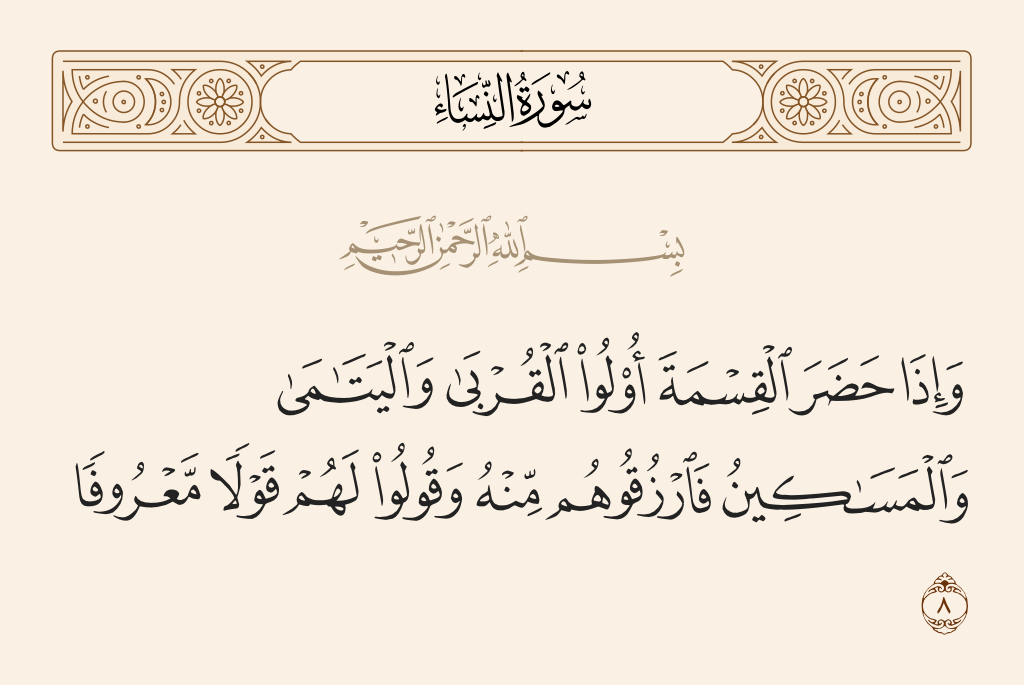 سُورَةُ النِّسَاءِ
بِسْمِ ٱللَّهِ ٱلرَّحْمَٰنِ ٱلرَّحِيمِ
وَإِذَا حَضَرَ ٱلْقِسْمَةَ أُوْلُوا۟ ٱلْقُرْبَىٰ وَٱلْيَتَـٰمَىٰ
وَٱلْمَسَـٰكِينُ فَٱرْزُقُوهُم مِّنْهُ وَقُولُوا۟ لَهُمْ قَوْلًا مَّعْرُوفًا
٨